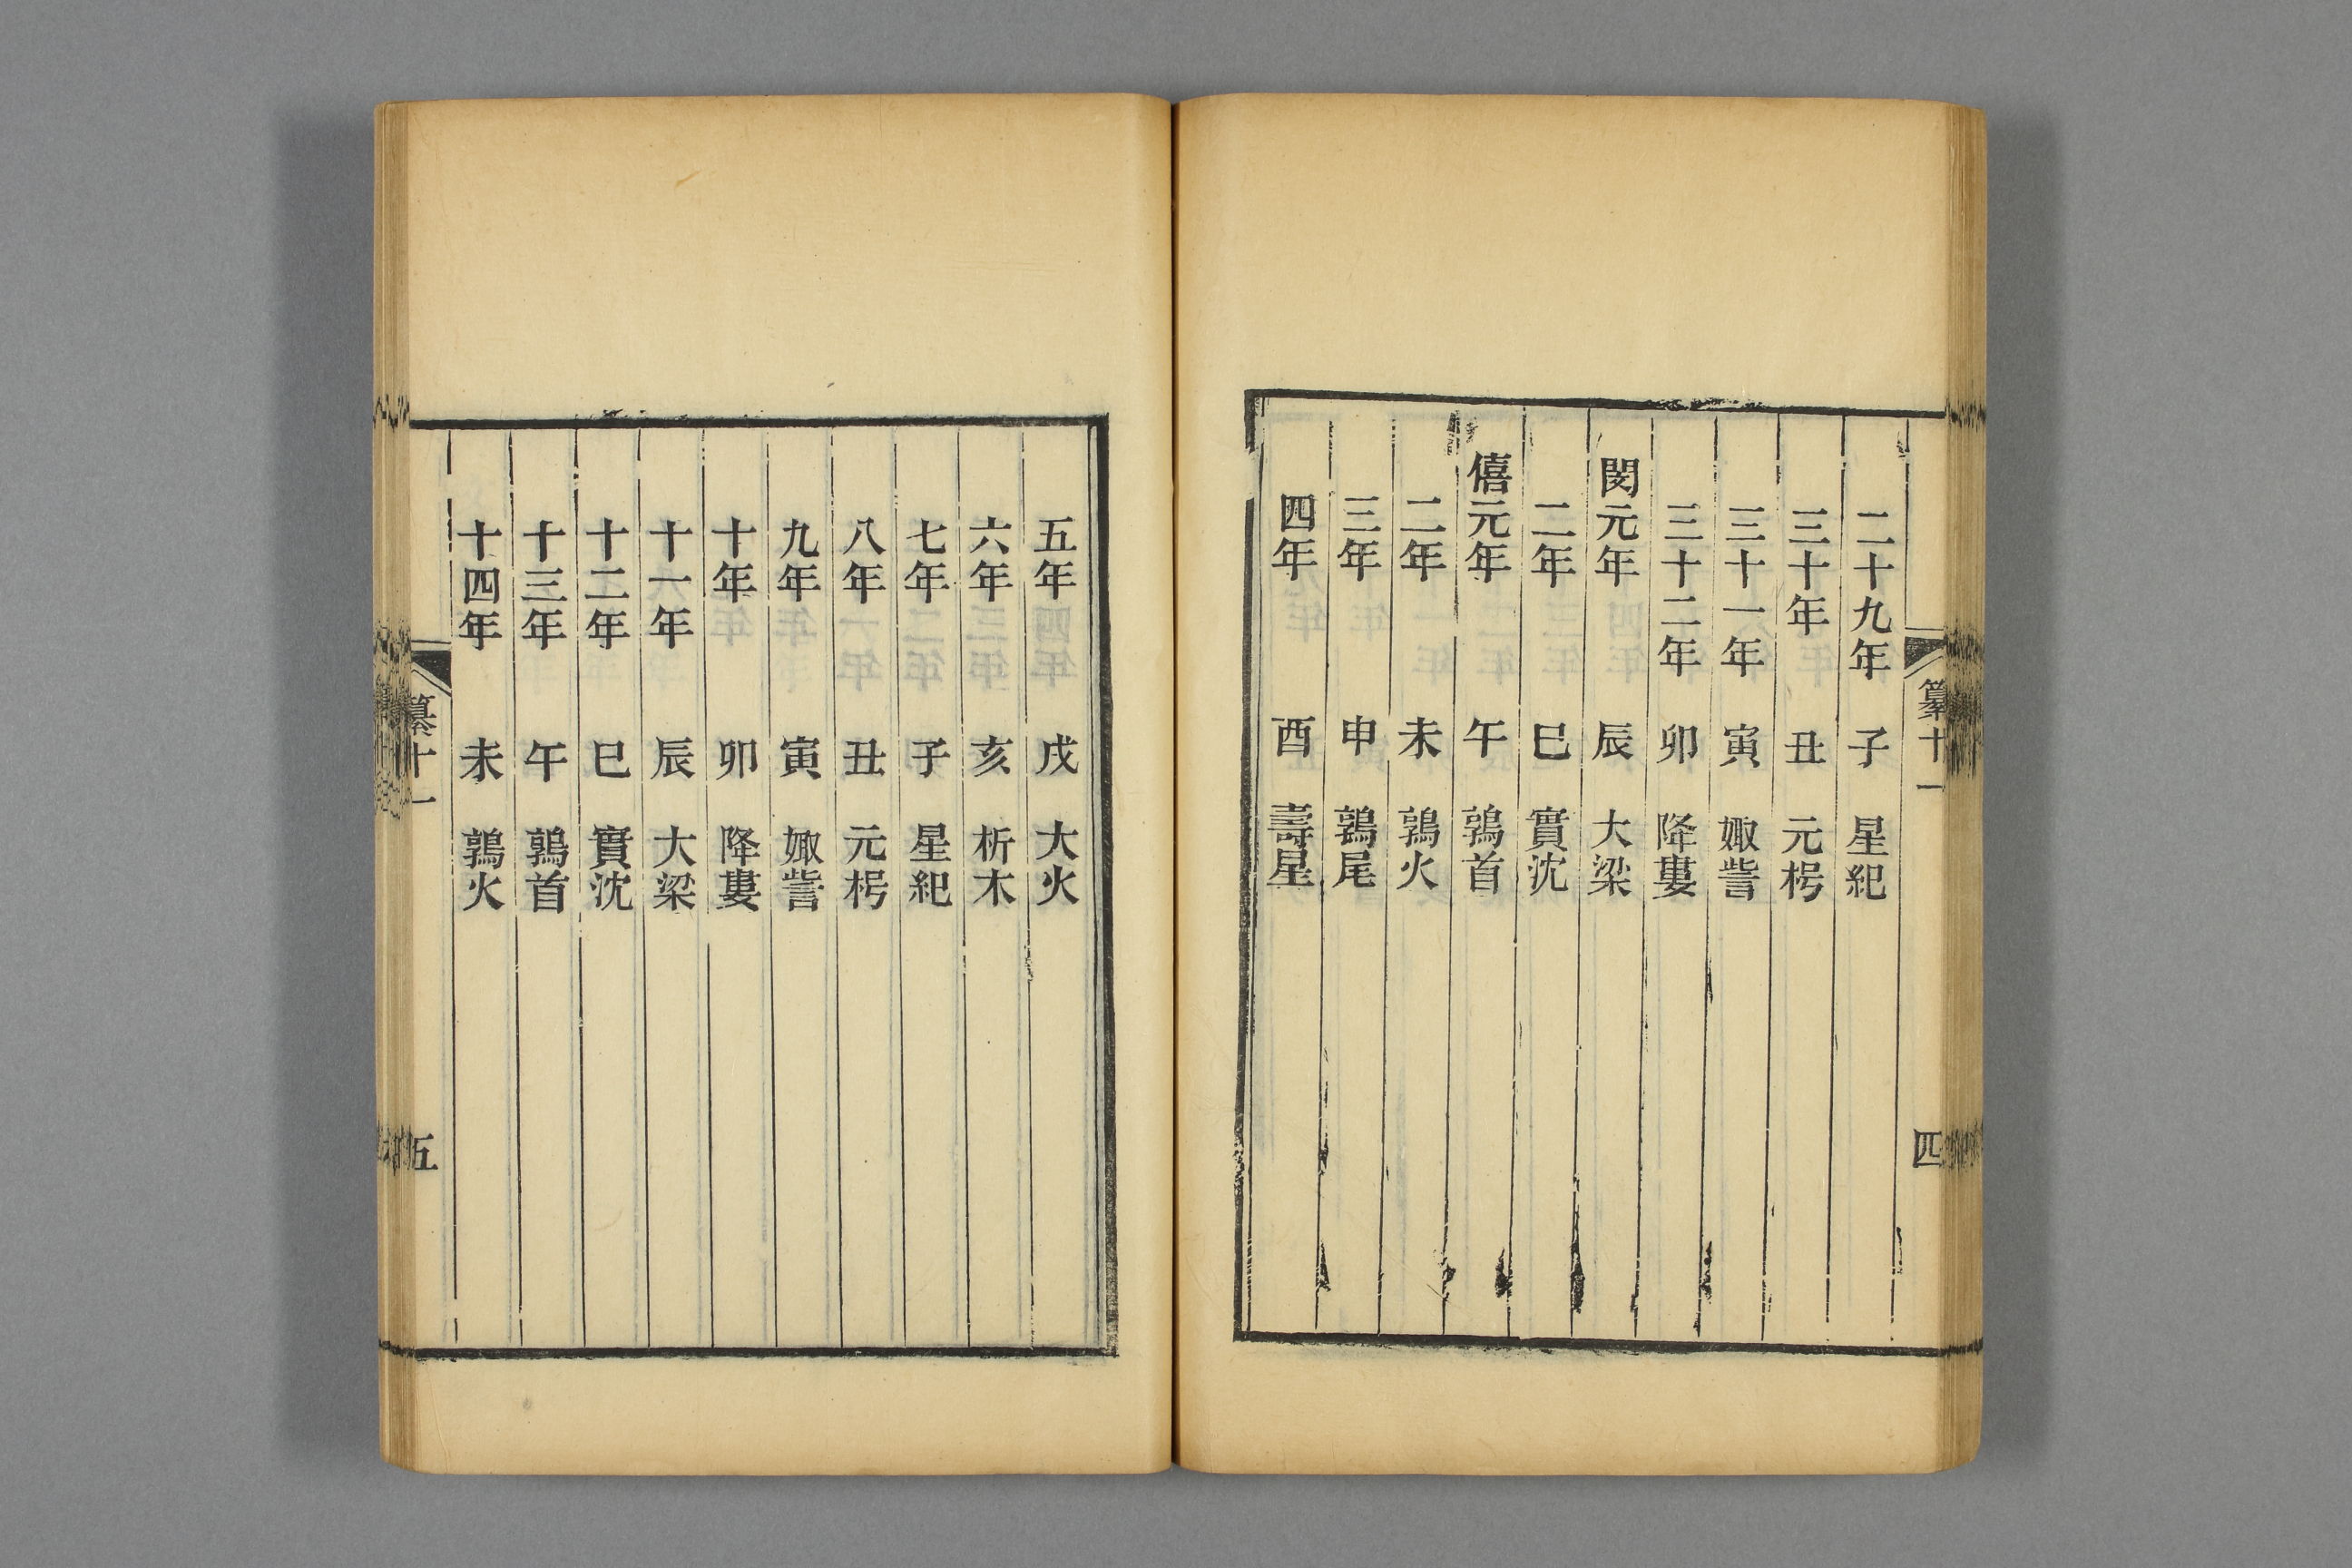 纂十一
四
二十九年 子 星紀
三十年 丑 元枵
三十一年 寅 娵訾
三十二年 卯 降婁
閔元年 辰 大梁
二年 巳 實沈
僖元年 午 鶉首
二年 未 鶉火
三年 申 鶉尾
四年 酉 壽星
五年 戌 大火
六年 亥 析木
七年 子 星紀
八年 丑 元枵
九年 寅 娵訾
十年 卯 降婁
十一年 辰 大梁
十二年 巳 實沈
十三年 午 鶉首
十四年 未 鶉火
纂十一
五